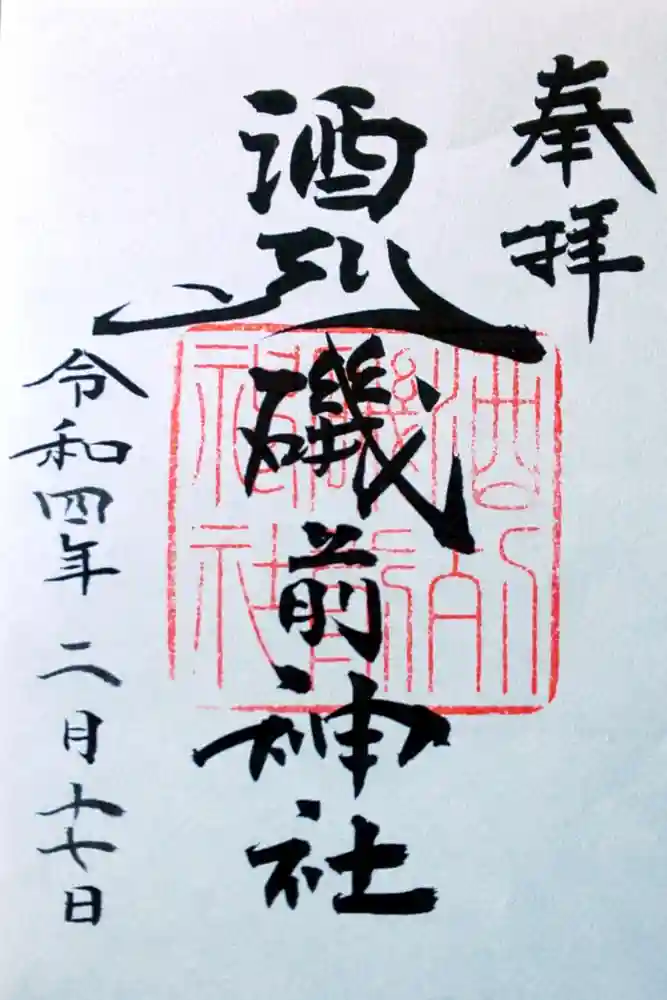 奉拝
酒列磯前神社
令和四年 二月十七日
酒列
磯前
神社